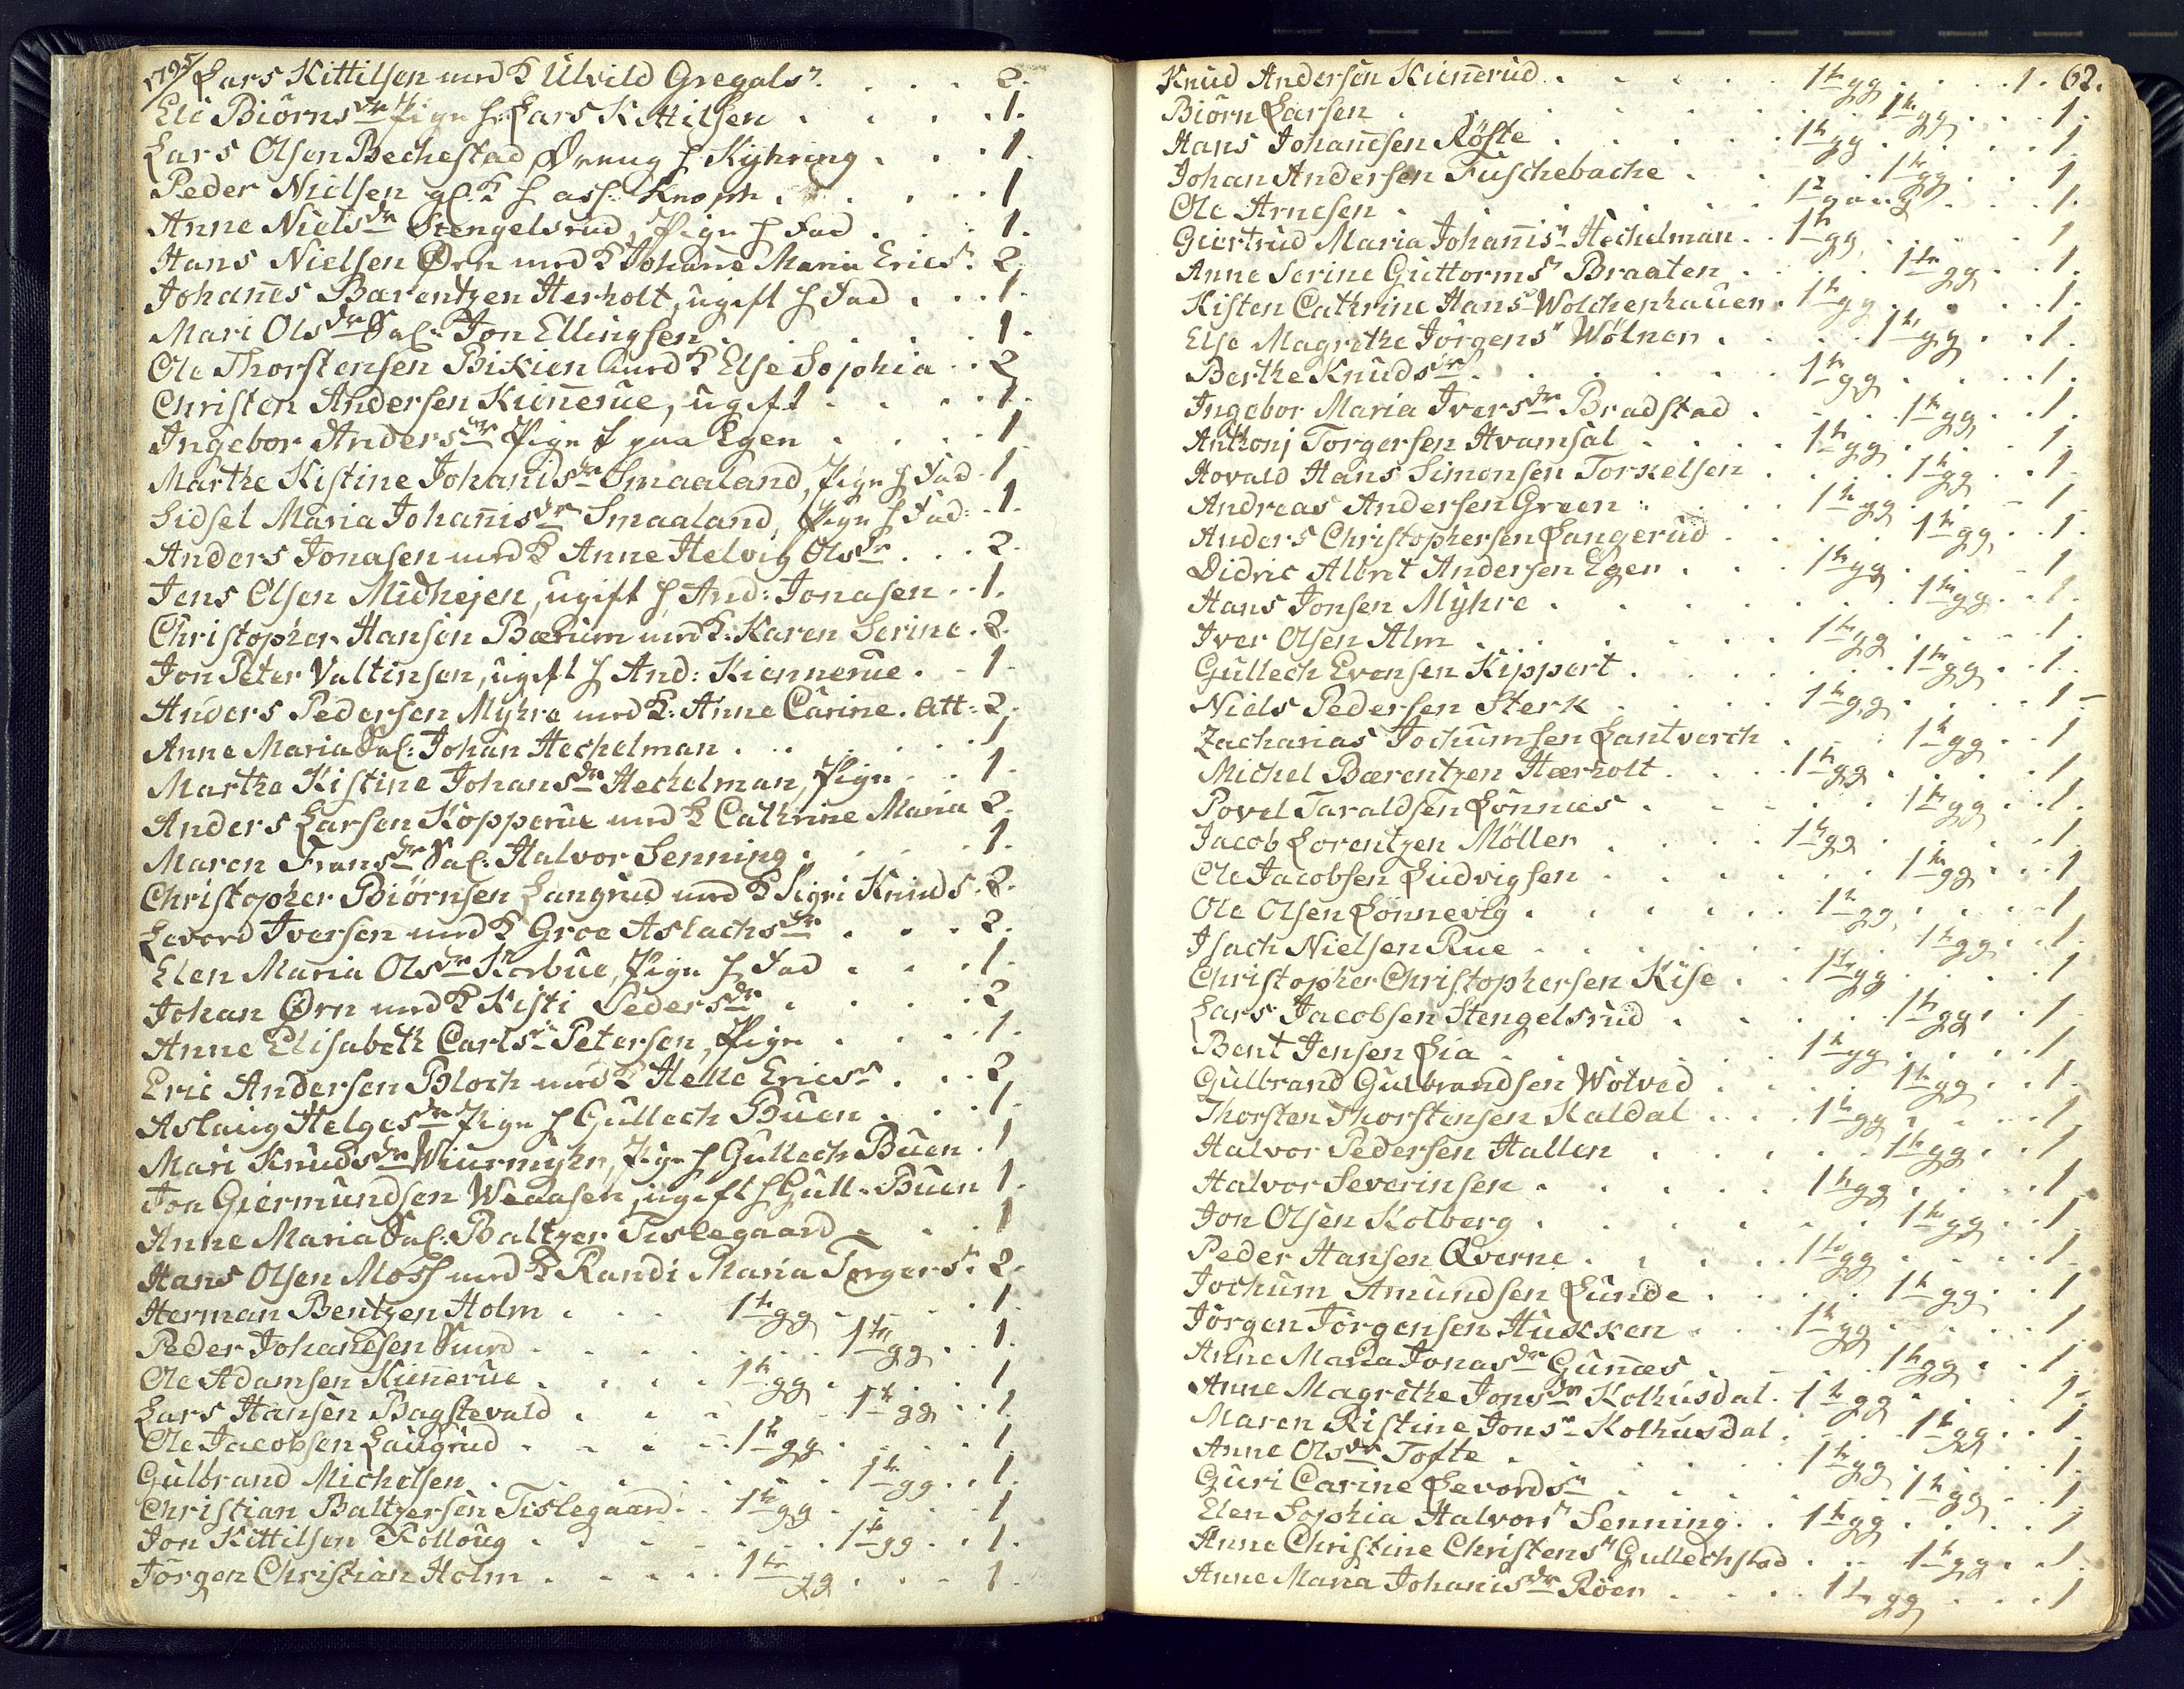 1795 Lars Kittilsen med K Ulvild Gregals n . . . 2.
Eli Biörns dr Pige h: Lars Kittilsen . . . . 1.
Lars Olsen Bechestad Dreng h Kyhring . . . 1.
Peder Nielsen gl. K h ass. Knoph . . . . 1
Anne Niels dr Stengelsrud, Pige h Fad . . . 1.
Hans Nielsen Ørn med K Johanne Maria Erics. 2.
Johannes Bærentzen Herholt, ugift h Fad . . . 1.
Mari Ols dr Sal. Jon Ellingsen . . . . . 1.
Ole Thorstensen Bikien med K Else Sophia . . 2
Christen Andersen Kiennerue, ugift . . . . 1.
Ingebor Anders dr Pige h paa Egen . . . . 1
Marthe Kistine Johanis dr Smaaland, Pige h Fad . 1
Sidsel Maria Johannis dr Smaaland, Pige h Fad: . 1.
Anders Jonasen med K Anne Helvig Ols dr . . . 2.
Jens Olsen Midhejen, ugift h And: Jonasen . . 1.
Christopher Hansen Bærum med K: Karen Serine . 2.
Jon Peter Valtinsen, ugift h And: Kiennerue . . 1.
Anders Pedersen Myhre med K: Anne Carine. Att: 2.
Anne Maria Sal: Johan Hechelman . . . . . 1
Marthe Kistine Johans dr Hechelman, Pige . . 1.
Anders Larsen Kopperue med K Cathrine Maria 2.
Maren Frans dr Sal: Halvor Senning . . . . 1.
Christopher Biörnsen Langrud med K Sigri Knuds . 2.
Levord Iversen med K Groe Aslachs dr . . . 2.
Elen Maria Ols dr Korbue, Pige h Fad . . . 1.
Johan Ørn med K Kisti Peders dr . . . . 2
Anne Elisabeth Carls n Petersen, Pige . . . 1.
Eric Andersen Bloch med K Helle Erics n . . . 2
Aslaug Helges dr Pige h Gullech Buen . . . 1.
Mari Knuds dr Wiurmyhr, Pige h Gullech Buen . 1
Jon Giermundsen Weaasen, ugift h Gull. Buen 1.
Anne Maria Sal: Baltzer Tislegaard . . . 1
Hans Olsen Moss med K Randi Maria Torgers. 2.
Herman Bentzen Holm . . . 1 te gg . . . . 1.
Peder Johannesen Sund . . . . . 1 te gg . . 1.
Ole Adamsen Kiennerue . . . . 1 te gg . . . . 1
Lars Hansen Bagstevald . . . . 1 te gg . . 1.
Ole Jacobsen Laugrud . . . . 1 te gg . . . . 1
Gulbrand Michelsen . . . . . . 1 te gg . . 1.
Christian Baltzersen Tislegaard . . 1 te gg . . . . 1
Jon Kittilsen Kolloug . . . . . 1 te gg . . 1.
Jörgen Christian Holm . . . . 1 te gg . . . 1.
Knud Andersen Kiennerud . . . . 1 te gg . . . 1. 62.
Biörn Larsen . . . . . . 1 te gg . . . 1.
Hans Johannesen Röste . . . . . 1 te gg . . . . 1
Johan Andersen Fuschebache . . . 1 te gg . . 1
Ole Arnesen . . . . . . 1 2 gang . . . 1.
Giertrud Maria Johannis n Hechelman . . 1 te gg . . . . 1
Anne Serine Guttorms n Braaten . . . . 1 te gg . . 1.
Kisten Cathrine Hans n Wolchenhauen . 1 te gg . . . . 1.
Else Magrethe Jörgens n Wölner . . . . 1 te gg . . 1.
Berthe Knuds dr . . . . . . 1 te gg . . . . 1.
Ingebor Maria Ivers dr Bradstad . . . . 1 te gg . . 1.
Anthonj Torgersen Hvamsal . . . . 1 te gg . . . . 1.
Hovald Hans Simonsen Torkelsen . . . . 1 te gg . . 1
Andreas Andersen Green . . . . 1 te gg . . . 1
Anders Christophersen Langerud . . . . 1 te gg . . 1.
Didric Albrit Andersen Egen . . . 1 te gg . . . . 1
Hans Jonsen Myhre . . . . . . 1 te gg . . 1.
Iver Olsen Alm . . . . . . 1 te gg . . . . 1.
Gullech Evensen Kippert . . . . . 1 te gg . . 1.
Niels Pedersen Sterk . . . . . 1 te gg . . . . 1 -
Zacharias Jochumsen Lantverch . . . 1 te gg . . 1
Michel Bærentzen Hærholt . . . . 1 te gg . . . . 1
Povel Taraldsen Lönnæs . . . . . 1 te gg . . 1.
Jacob Lorentzen Möller . . . . 1 te gg . . . . 1.
Ole Jacobsen Ludvigsen . . . . . 1 te gg . . . 1
Ole Olsen Lönnevig . . . . . . 1 te gg . . . . 1
Isach Nielsen Rue . . . . . . 1 te gg . . 1.
Christopher Christophersen Kise . . 1 te gg . . . . 1
Lars Jacobsen Stengelsrud . . . . . 1 te gg . . 1
Bent Jensen Lia . . . . . . 1 te gg . . . . 1
Gulbrand Gulbrandsen Wolved . . . . 1 te gg . . 1.
Thorsten Thorstensen Kaldal . . . 1 te gg . . . . 1
Halvor Pedersen Hallen . . . . . 1 te gg . . 1
Halvor Severinsen . . . . . 1 te gg . . . . 1
Jon Olsen Kolberg . . . . . . 1 te gg . . 1
Peder Hansen Qverne . . . . . 1 te gg . . . . 1
Jochum Amundsen Lunde . . . . . 1 te gg . . 1
Jörgen Jörgensen Hukken . . . 1 te gg . . . . 1
Anne Maria Jonas dr Gunnæs . . . . 1 te gg . . 1
Anne Magrethe Jons dr Kolhusdal . 1 te gg . . . . 1.
Maren Kistine Jons n Kolhusdal . . . 1 te gg . . 1.
Anne Ols dr Tofte . . . . . . 1 te gg . . . . 1.
Guri Carine Levords n . . . . . . 1 te gg . . 1
Elen Sophia Halvors n Senning . . 1 te gg . . . . 1
Anne Christine Christens n Gullechstad . . . 1 te gg . . 1.
Anne Maria Johanis dr Röen . . . . 1 te gg . . . 1